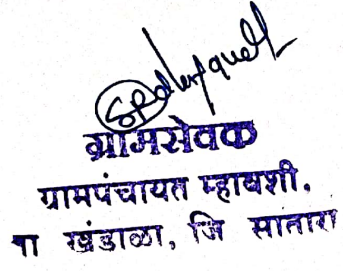 ग्रामसेवक
ग्रामपंचायत म्हावशी.
ता खंडाळा, जि सातारा